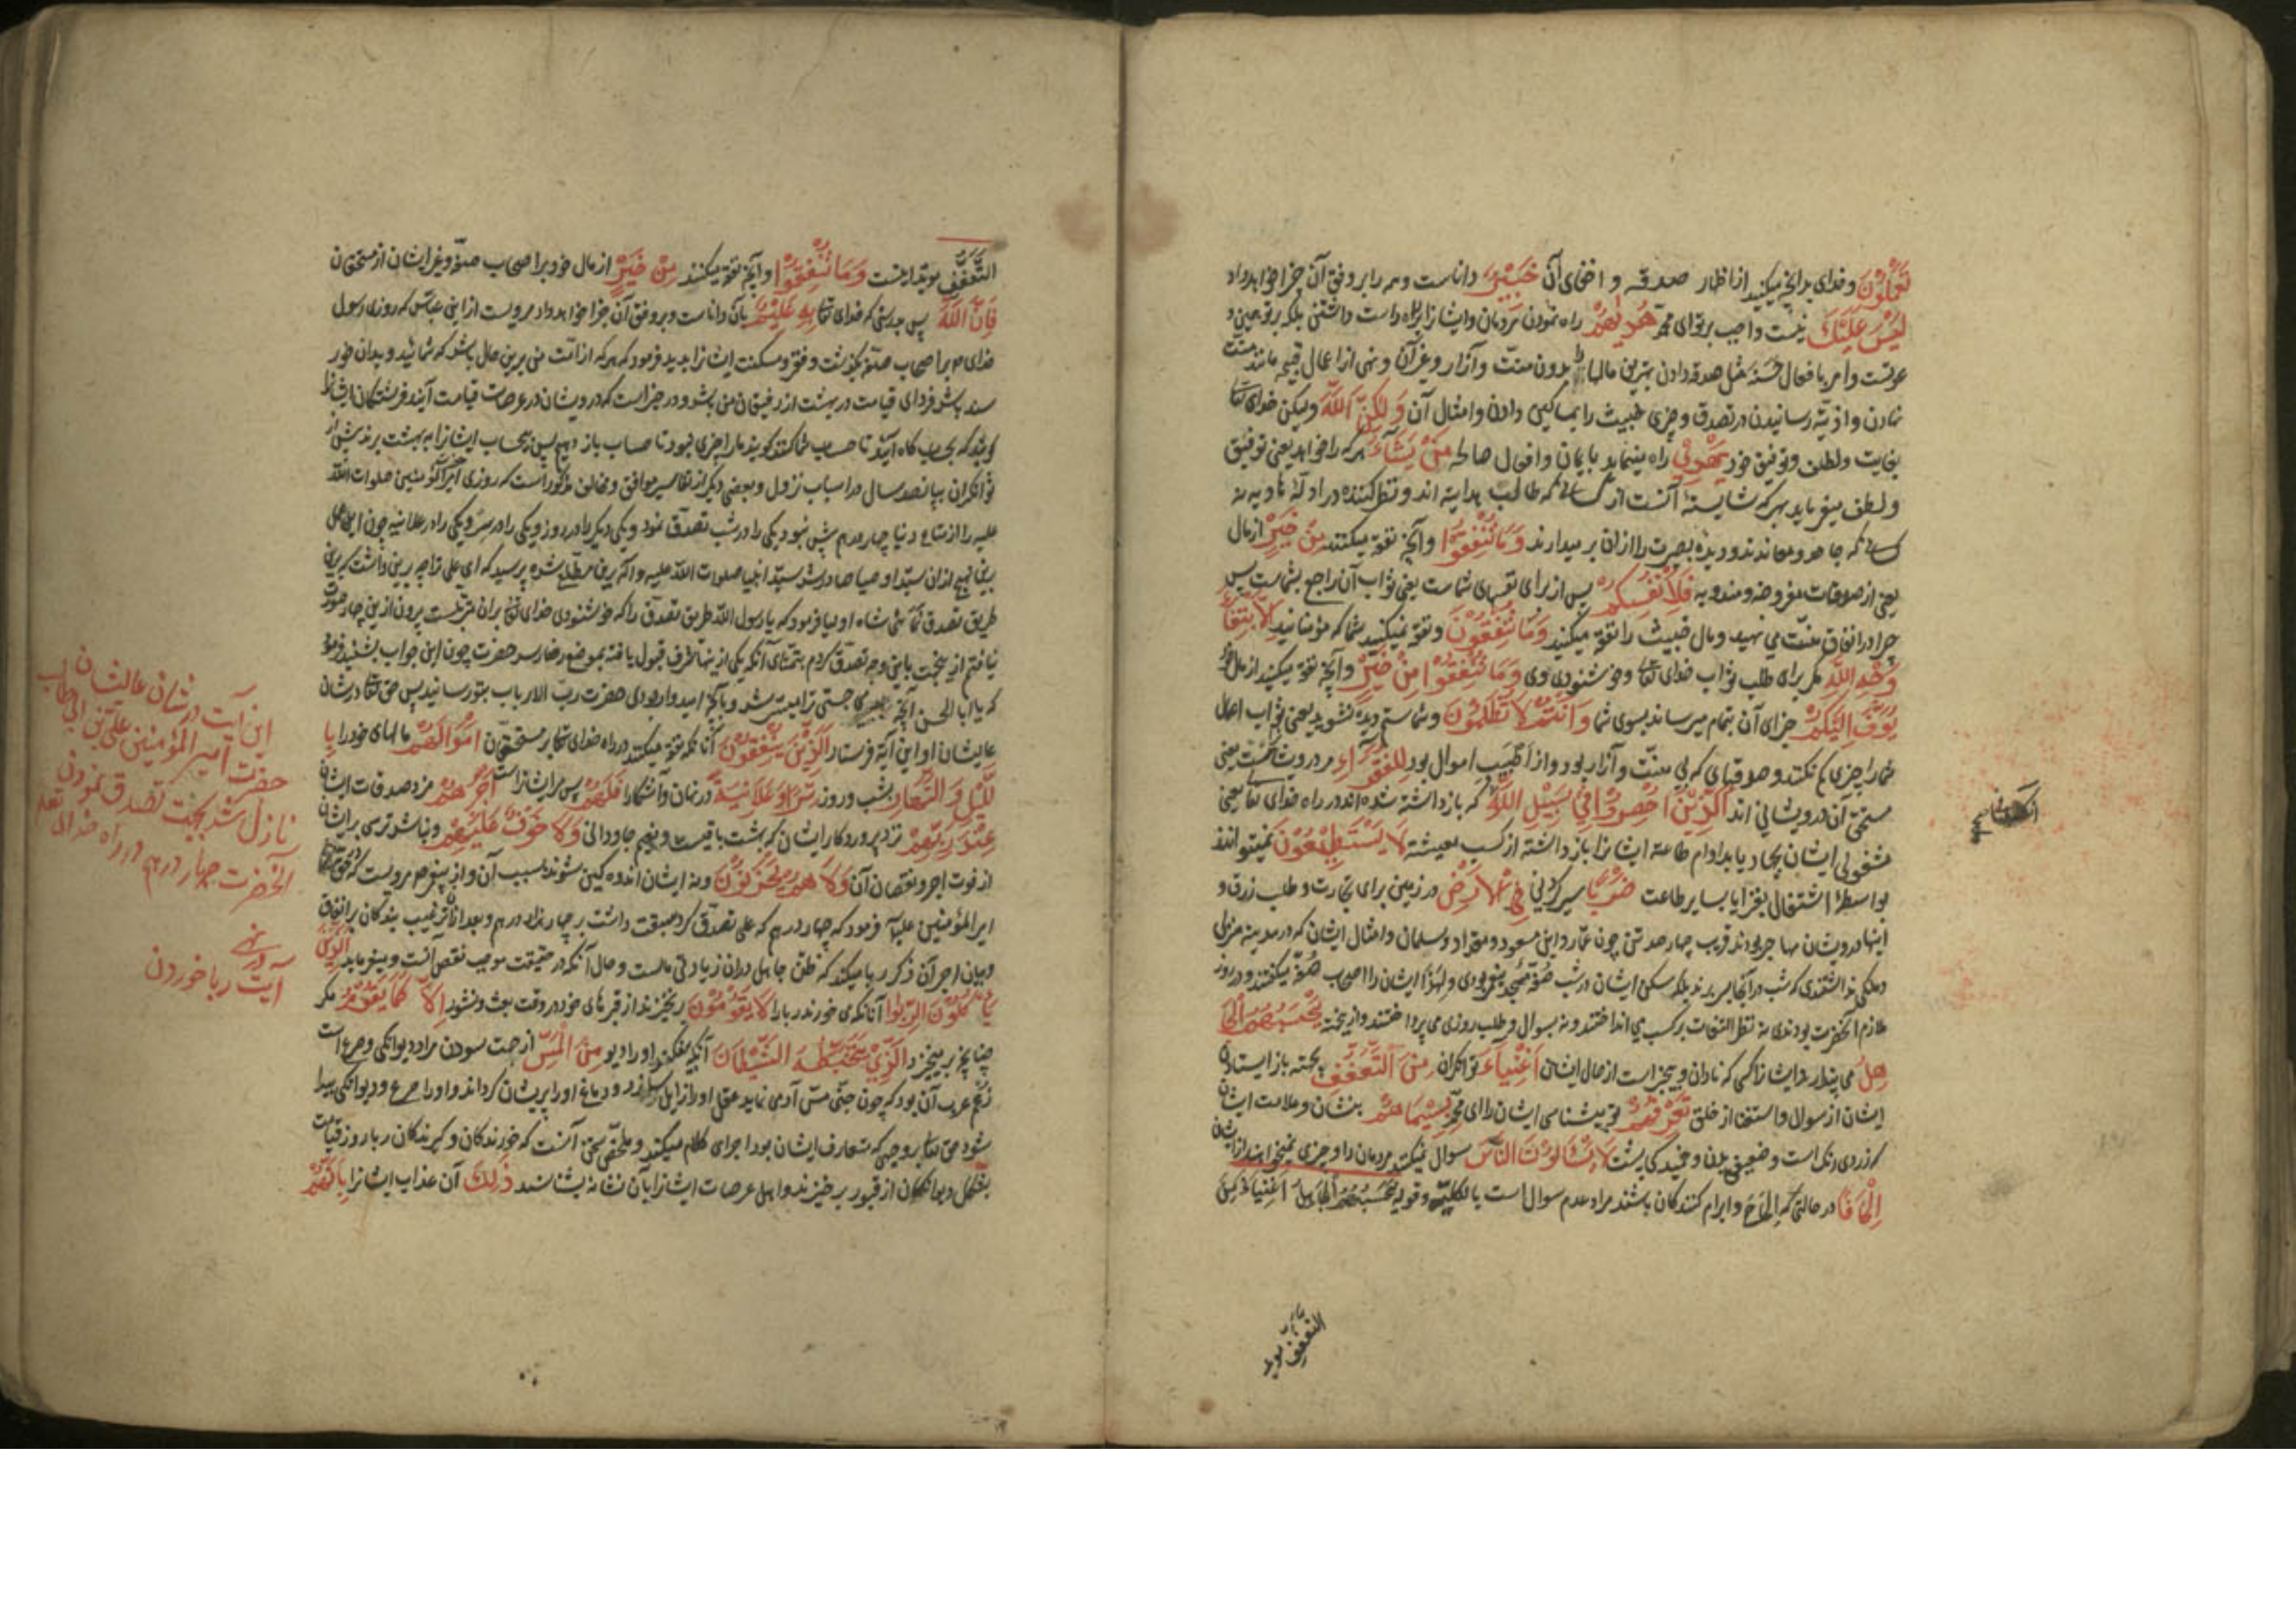 تَعْمَلُوْنَ وخدای بدانچه میکنید از اظهار صدقه و اخفای آن خَبِیْرٌ داناست وهمه را بر وفق آن جزا خواهد داد
لَیْسَ عَلَیْکَ نیست واجب بر تو ای محمد هُدٰیهُمْ راه نمودن مردمان وایشانرا براه راست داشتن بلکه بر تو همین
وامر بافعال حسنه مثل صدقه دادن بهترین مالها بدون منت وآزار وغیر آن ونهی از اعمال قبیحه مانند منت
نهادن واذیت رسانیدن در تصدق وچیزی خبیث را بمساکین دادن وامثال آن وَلٰکِنَّ اللّٰهَ ولیکن خدای تعالی
بعنایت ولطف وتوفیق خود یَهْدِیْ راه مینماید بایمان وافعال صالحه مَنْ یَشَآءُ هرکه را خواهد یعنی توفیق
ولطف میفرماید بهرکه شایسته آنست از کسانی که طالب هدایت اند ونظر کننده در ادله نادیه نه
کسانی که جاحد ومعاندند ودیده بصیرت را ازان بر میدارند وَمَا تُنْفِقُوْا وآنچه نفقه میکنند مِنْ خَیْرٍ از مال
یعنی از صدقات مفروضه ومندوبه فَلِاَنْفُسِکُمْ پس از برای نفسهای شماست یعنی ثواب آن راجع بشماست پس
چرا در انفاق منت می نهید ومال خبیث را نفقه میکنید وَمَا تُنْفِقُوْنَ ونفقه نمیکنید شما که مؤمنانید اِلَّا ابْتِغَآءَ
وَجْهِ اللّٰهِ مگر برای طلب ثواب خدای تعالی وخوشنودی وی وَمَا تُنْفِقُوْا مِنْ خَیْرٍ وآنچه نفقه میکنید از مال خود
یُوَفَّ اِلَیْکُمْ جزای آن بتمام میرسانند بسوی شما وَاَنْتُمْ لَا تُظْلَمُوْنَ وشما ستم دیده نشوید یعنی ثواب اعمال
شما را چیزی کم نکنند وصدقهای که بی منت وآزار بود واز اطیب اموال بود لِلْفُقَرَآءِ مر درویشانست یعنی
مستحق آن درویشانی اند الَّذِیْنَ اُحْصِرُوْا فِیْ سَبِیْلِ اللّٰهِ که باز داشته شده اند در راه خدای تعالی یعنی
مشغولی ایشان بجهاد یا بدوام طاعت ایشانرا باز داشته از کسب معیشت لَا یَسْتَطِیْعُوْنَ نمیتوانند
بواسطه اشتغال بغزا یا بسایر طاعت ضَرْبًا سیر کردنی فِی الْاَرْضِ در زمین برای تجارت وطلب رزق و
اینها درویشان مهاجر بودند قریب چهار صد تن چون عمار وابن مسعود ومقداد وسلمان وامثال ایشان که در مدینه منزلی
ومسکنی نداشتندی که شب در آنجا بسر برند بلکه مسکن ایشان در شب صفه مسجد پیغمبر بودی ولهذا ایشان را اصحاب صفه میگفتند ودر روز
ملازم آنحضرت بودندی نه نظر التفات بر کسب می انداختند ونه بسوال وطلب روزی می پرداختند وازینجهت یَحْسَبُهُمُ الْجَا
هِلُ می پندارد ایشانرا کسی که نادان وبیخبر است از حال ایشان اَغْنِیَآءَ توانگران مِنَ التَّعَفُّفِ بجهت باز ایستادن
ایشان از سوال واستغنا از خلق تَعْرِفُهُمْ میشناسی ایشان را ای محمد بِسِیْمَاهُمْ بنشان وعلامت ایشان
که زردی رنگ است وضعیفی بدن وخمیدگی پشت لَا یَسْئَلُوْنَ النَّاسَ سوال نمیکنند مردمان را وچیزی نمیخواهند از ایشان
اِلْحَافًا در حالتی که الحاح وابرام کنندگان باشند مراد عدم سوال است بالکلیه وقوله یَحْسَبُهُمُ الْجَاهِلُ اَغْنِیَآءَ مِنَ
التعفف موید
التَّعَفُّفِ موید اینست وَمَا تُنْفِقُوْا وآنچه نفقه میکنند مِنْ خَیْرٍ از مال خود بر اصحاب صفه وغیر ایشان از مستحقان
فَاِنَّ اللّٰهَ پس بدرستی که خدای تعالی بِهٖ عَلِیْمٌ بآن داناست وبر وفق آن جزا خواهد داد مرویست از ابن عباس که روزی رسول
خدای بر اصحاب صفه بگذشت وفقر ومسکنت ایشانرا بدید فرمود که هرکه از امت من برین حال باشد که شمائید وبدان خور
سند باشد فردای قیامت در بهشت از رفیقان من باشد ودر خبر است که درویشان در عرصات قیامت آیند فرشتگان ایشانرا
گویند که بحساب گاه آیید تا حساب شما کنند گویند ما را چیزی نبود تا حساب باز دهیم پس بیحساب ایشانرا به بهشت برند پیش از
توانگران بپانصد سال در اسباب نزول وبعضی دیگر از تفاسیر موافق ومخالف مذکور است که روزی امیرالمؤمنین صلوات الله
علیه را از متاع دنیا چهار درهم بیش نبود یکی را در شب تصدق نمود ویکی دیگر را در روز ویکی را در سر ویکی را در علانیه چون این عمل
برین نهج ازان سید اوصیا صادر شد سید انبیا صلوات الله علیه وآله برین مطلع شده پرسید که ای علی ترا چه برین داشت که برین
طریق تصدق نمائی شاه اولیا فرمود که یا رسول الله طریق تصدق را که خوشنودی خدای تعالی بران مترتبست بیرون ازین چهار صورت
نیافتم ازینجهت باین وجه تصدق کردم بتمنای آنکه یکی ازینها شرف قبول یافته بموضع رضا رسد حضرت چون این جواب بشنید فرمود
که یا ابا الحسن آنچه جستی ترا میسر شد وبآنچه امیدوار بودی حضرت رب الارباب بتو رسانید پس حق تعالی در شان
عالیشان او این آیه فرستاد اَلَّذِیْنَ یُنْفِقُوْنَ آنانکه نفقه میکنند در راه خدای تعالی بر مستحقان اَمْوَالَهُمْ مالهای خود را بِا
لَّیْلِ وَالنَّهَارِ بشب وروز سِرًّا وَعَلَانِیَةً در نهان وآشکارا فَلَهُمْ پس مر ایشانراست اَجْرُهُمْ مزد صدقات ایشان
عِنْدَ رَبِّهِمْ نزد پروردگار ایشان که بهشت باقیست ونعیم جاودانی وَلَا خَوْفٌ عَلَیْهِمْ ونباشد ترسی بر ایشان
از فوت اجر ونقصان آن وَلَا هُمْ یَحْزَنُوْنَ ونه ایشان اندوهگین شوند بسبب آن واز پیغمبر مرویست که
امیرالمؤمنین علیه فرمود که چهار درهم که علی تصدق کرد سبقت داشت بر چهار هزار درهم وبعد از ترغیب بندگان بر انفاق
وبیان اجر آن ذکر ربا میکند که ظن جاهل دران زیادتی مالست وحال آنکه در حقیقت موجب نقص آنست ومیفرماید اَلَّذِیْنَ
یَاْکُلُوْنَ الرِّبٰوا آنانکه می خورند ربا را لَا یَقُوْمُوْنَ بر نخیزند از قبرهای خود در وقت بعث ونشور اِلَّا کَمَا یَقُوْمُ مگر
چنانچه بر میخیزد الَّذِیْ یَتَخَبَّطُهُ الشَّیْطَانُ آنکه بیفکند او را دیو مِنَ الْمَسِّ از جهت سودن مراد دیوانگی وصرع است
زعم عرب آن بود که چون جنی مس آدمی نماید عقل او را زایل سازد ودماغ او را پریشان گرداند واو را صرع ودیوانگی پیدا
شود حق تعالی بر وجهی که متعارف ایشان بود اجرای کلام میکند وملخص سخن آنست که خورندگان وگیرندگان ربا روز قیامت
بشکل دیوانگان از قبور برخیزند واهل عرصات ایشانرا بآن نشانه بشناسند ذٰلِکَ آن عذاب ایشانرا بِاَنَّهُمْ
این آیت در شان عالیشان
حضرت امیر المؤمنین علی بن ابی طالب
نازل شد بجهت تصدق نمودن
آنحضرت چهار درهم در راه خدای تعالی
در نهی
آیت ربا خوردن